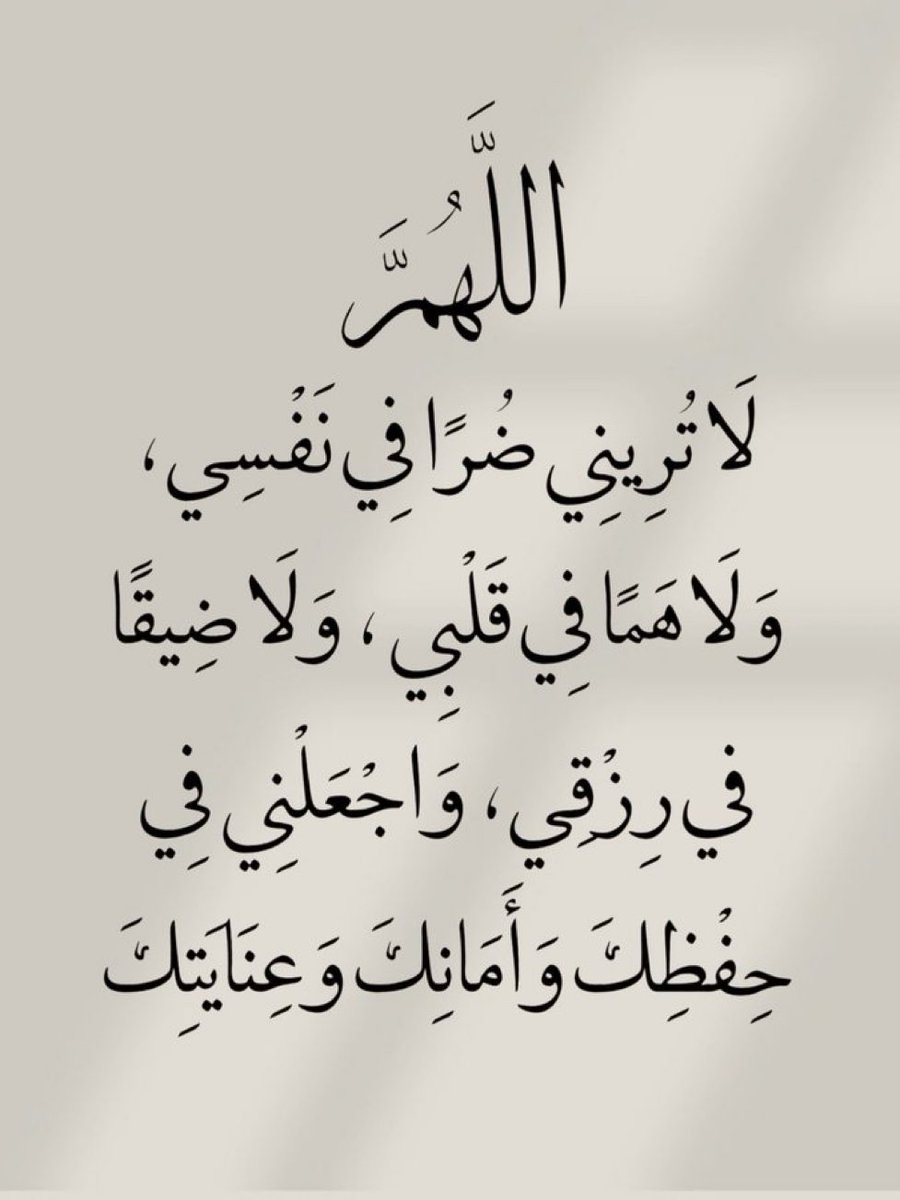 اللَّهُمَّ
لَا تُرِينِي ضُرًا فِي نَفْسِي،
وَلَا هَمًا فِي قَلْبِي، وَلَا ضِيقًا
في رِزْقِي، وَاجْعَلْنِي فِي
حِفْظِكَ وَأَمَانِكَ وَعِنَايَتِكَ